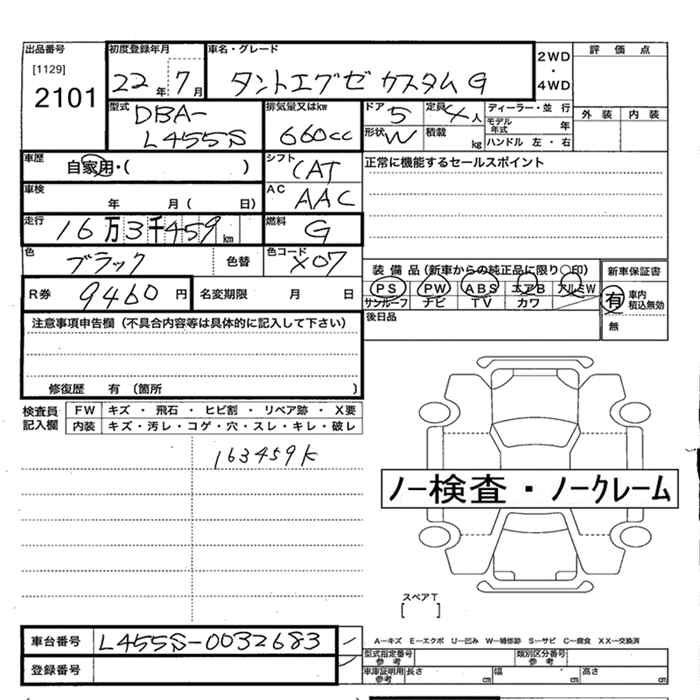 出品番号 初度登録年月 車名・グレード 2WD・4WD 評価点
[1129]
2101 22年 7月 タントエグゼ カスタム G
型式 DBA-L455S 排気量又はkw 660cc ドア 5 定員 4人 ディーラー・並行 外装 内装
形状 W 積載 kg モデル年式 年 ハンドル 左・右
車歴 自家用・( ) シフト CAT 正常に機能するセールスポイント
車検 年 月 ( 日) AC AAC
走行 16万3千459km 燃料 G
色 ブラック 色替 色コード X07
装備品(新車からの純正品に限り○印) 新車保証書
PS PW ABS エアB アルミW 有 車内積込無効
サンルーフ ナビ TV カワ 無
R券 9460円 名変期限 月 日
後日品
注意事項申告欄(不具合内容等は具体的に記入して下さい)
修復歴 有 (箇所 )
検査員記入欄 FW キズ・飛石・ヒビ割・リペア跡・X要
内装 キズ・汚レ・コゲ・穴・スレ・キレ・破レ
163459K
ノー検査・ノークレーム
スペアT
[ ]
車台番号 L455S-0032683
登録番号
A―キズ E―エクボ U―凹み W―補修跡 S―サビ C―腐食 XX―交換済
型式指定番号 参考 類別区分番号 参考
車庫証明用 参考 長さ cm 幅 cm 高さ cm